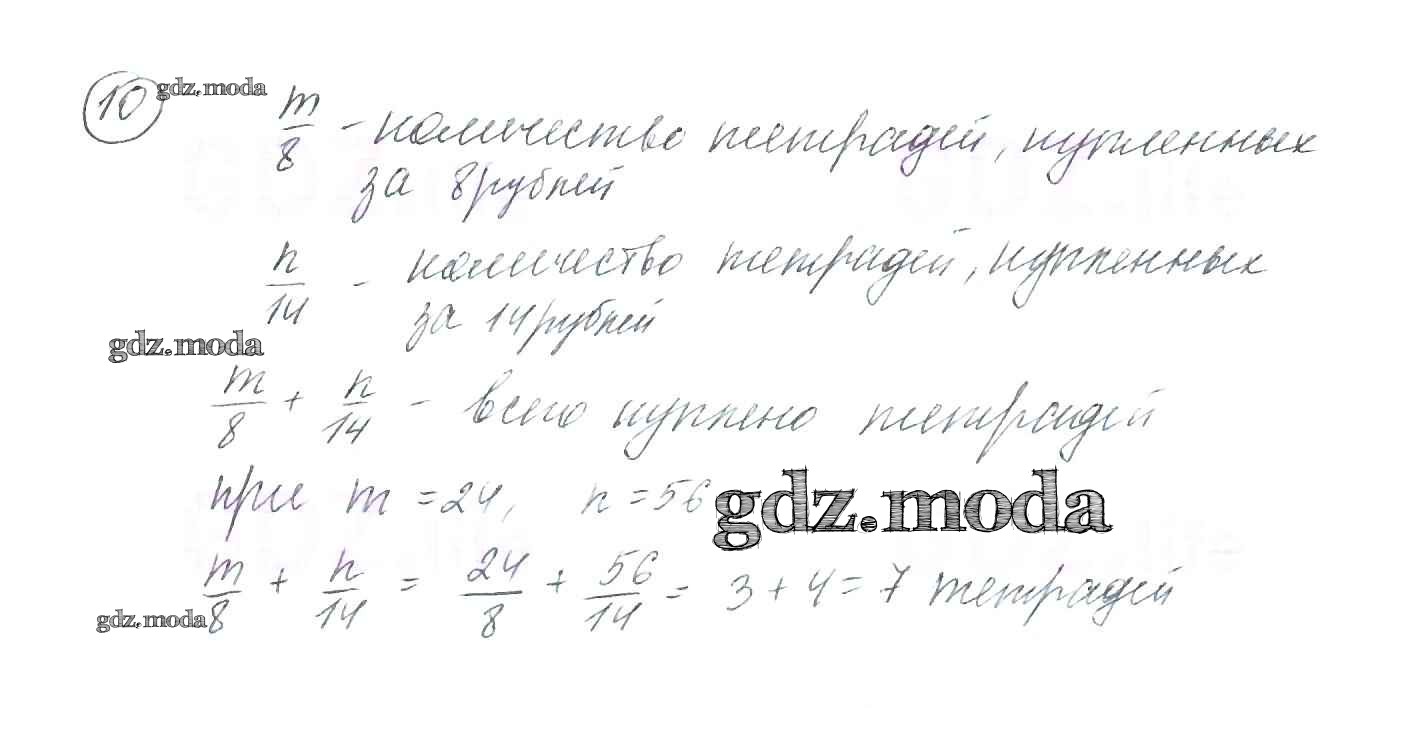 10 gdz.moda
m/8 - количество тетрадей, купленных
за 8 рублей
n/14 - количество тетрадей, купленных
за 14 рублей
gdz.moda
m/8 + n/14 - всего куплено тетрадей
при m = 24, n = 56 gdz.moda
m/8 + n/14 = 24/8 + 56/14 = 3 + 4 = 7 тетрадей
gdz.moda